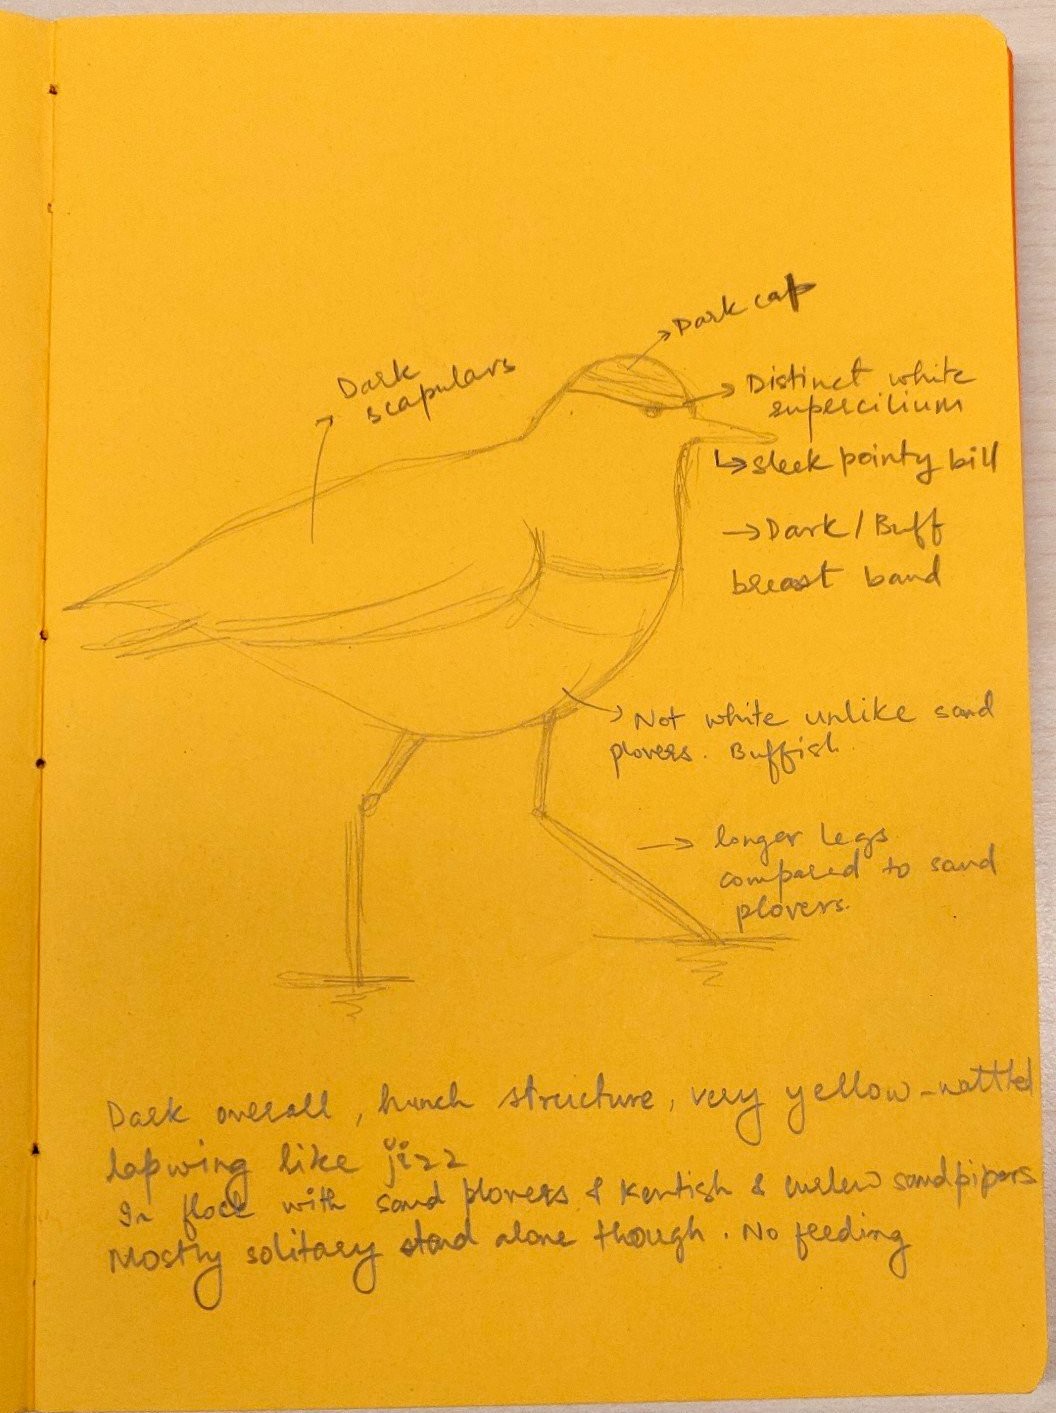 Dark cap
Dark
scapulars
Distinct white
supercilium
sleek pointy bill
Dark/Buff
breast band
Not white unlike sand
plovers. Buffish.
longer legs
compared to sand
plovers.
Dark overall, hunch structure, very yellow-wattled
lapwing like jizz
In flock with sand plovers & Kentish & curlew sandpipers
Mostly solitary stand alone though. No feeding